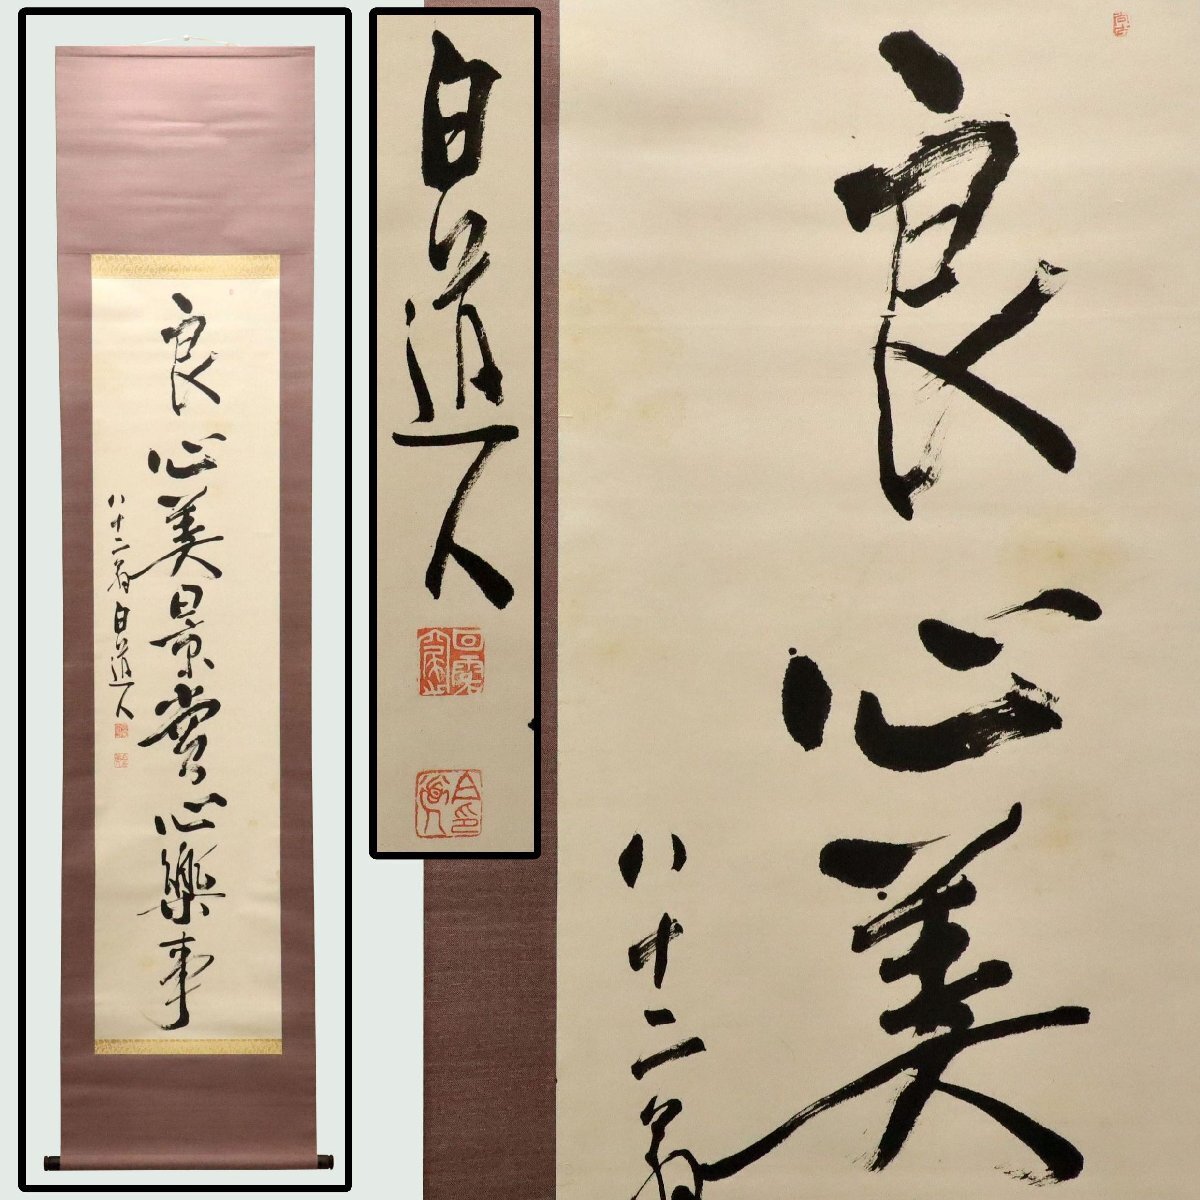 良心美景賞心樂事
八十二翁白道人
白道人
良心美
八十二翁